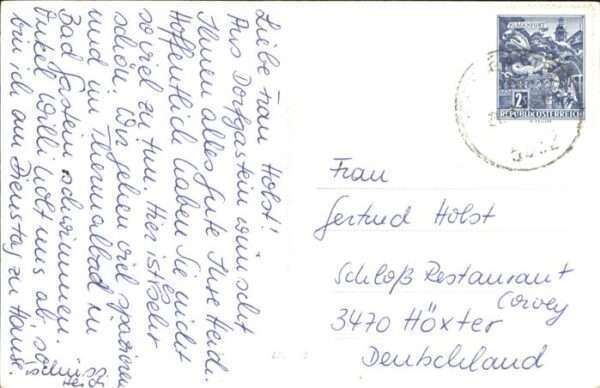 Liebe Frau Holst!
Aus Dorfgastein wünscht
Ihnen alles Gute Ihre Heidi.
Hoffentlich haben Sie nicht
so viel zu tun. Hier ist sehr
schön. Wir gehen viel spazieren
und im Thermalbad in
Bad Gastein schwimmen.
Onkel Willi holt uns ab, so
bin ich am Dienstag zu Hause.
Heidi
KLAGENFURT
2S
REPUBLIK ÖSTERREICH
5632
Frau
Gertrud Holst
Schloß Restaurant
Corvey
3470 Höxter
Deutschland